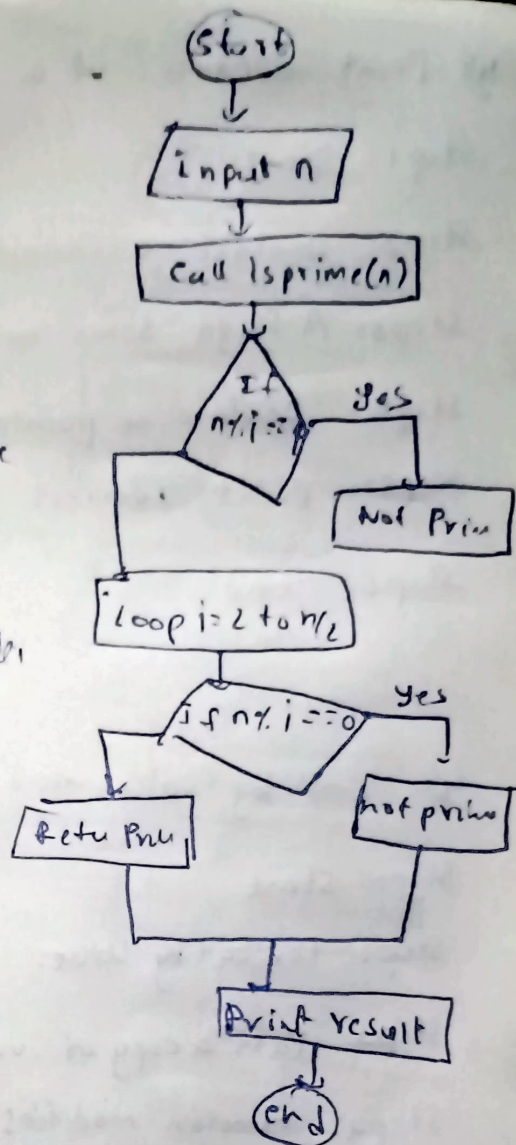 Start
input n
Call Isprime(n)
If
n%i==
Yes
Not Prim
Loop i=2 to n/2
If n% i ==0
Yes
Retu
not prime
Print result
end